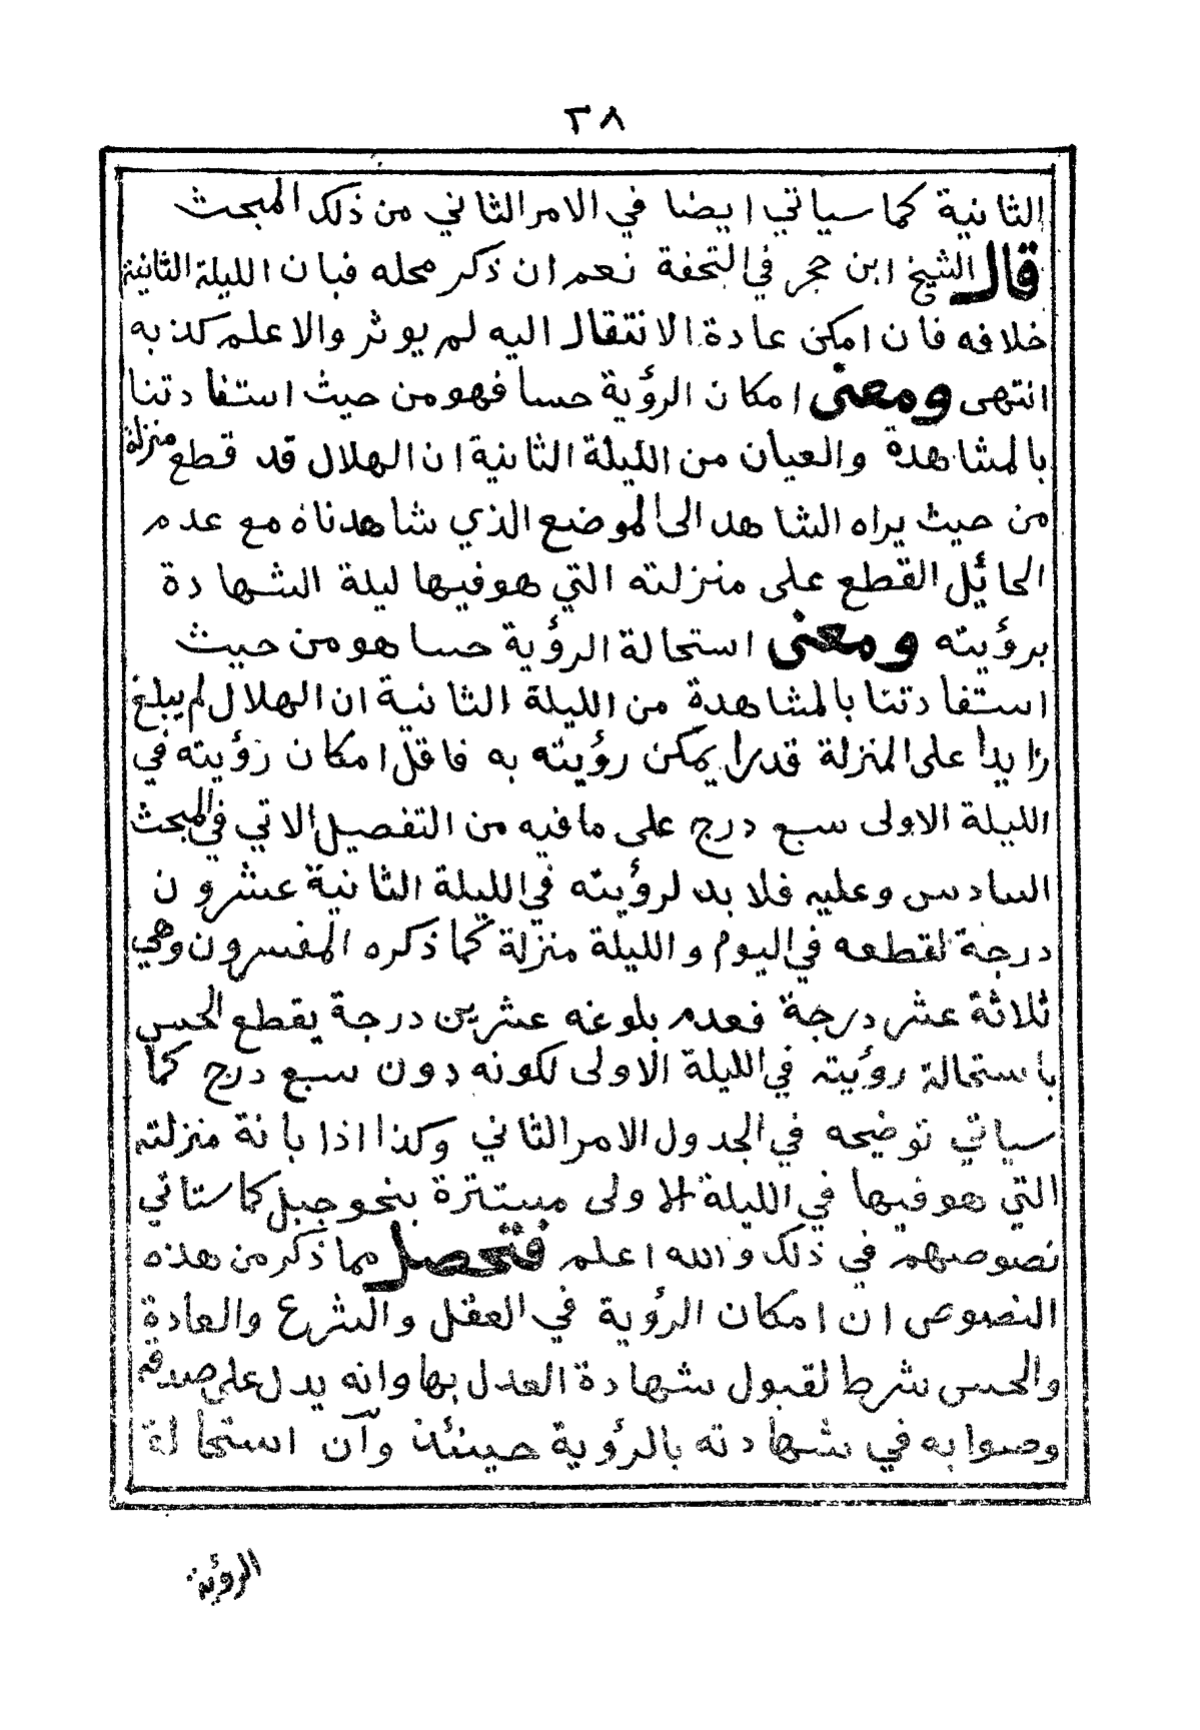 ٣٨
الثانية كما سياتي ايضا في الامر الثاني من ذلك المبحث
قال الشيخ ابن حجر في التحفة نعم ان ذكر محله فبان الليلة الثانية
خلافه فان امكن عادة الانتقال اليه لم يوثر والا علم كذبه
انتهى ومعنى امكان الرؤية حسا فهو من حيث استفادتنا
بالمشاهدة والعيان من الليلة الثانية ان الهلال قد قطع منزلة
من حيث يراه الشاهد الى الموضع الذي شاهدناه مع عدم
الحائل القطع على منزلته التي هو فيها ليلة الشهادة
برؤيته ومعنى استحالة الرؤية حسا هو من حيث
استفادتنا بالمشاهدة من الليلة الثانية ان الهلال لم يبلغ
زايدأ على المنزلة قدرا يمكن رؤيته به فاقل امكان رؤيته في
الليلة الاولى سبع درج على ما فيه من التفصيل الاتي في المبحث
السادس وعليه فلا بد لرؤيته في الليلة الثانية عشرون
درجة لقطعه في اليوم والليلة منزلة كما ذكره المفسرون وهي
ثلاثة عشر درجة فعدم بلوغه عشرين درجة يقطع الحس
باستحالة رؤيته في الليلة الاولى لكونه دون سبع درج كما
سياتي توضيحه في الجدول الامر الثاني وكذا اذا بانة منزلته
التي هو فيها في الليلة الاولى مستترة بنحو جبل كما ستاتي
نصوصهم في ذلك والله اعلم فتحصل مما ذكر من هذه
النصوص ان امكان الرؤية في العقل والشرع والعادة
والحس شرط لقبول شهادة العدل بها وانه يدل على صدقه
وصوابه في شهادته بالرؤية حينئذ وآن استحالة
الرؤية